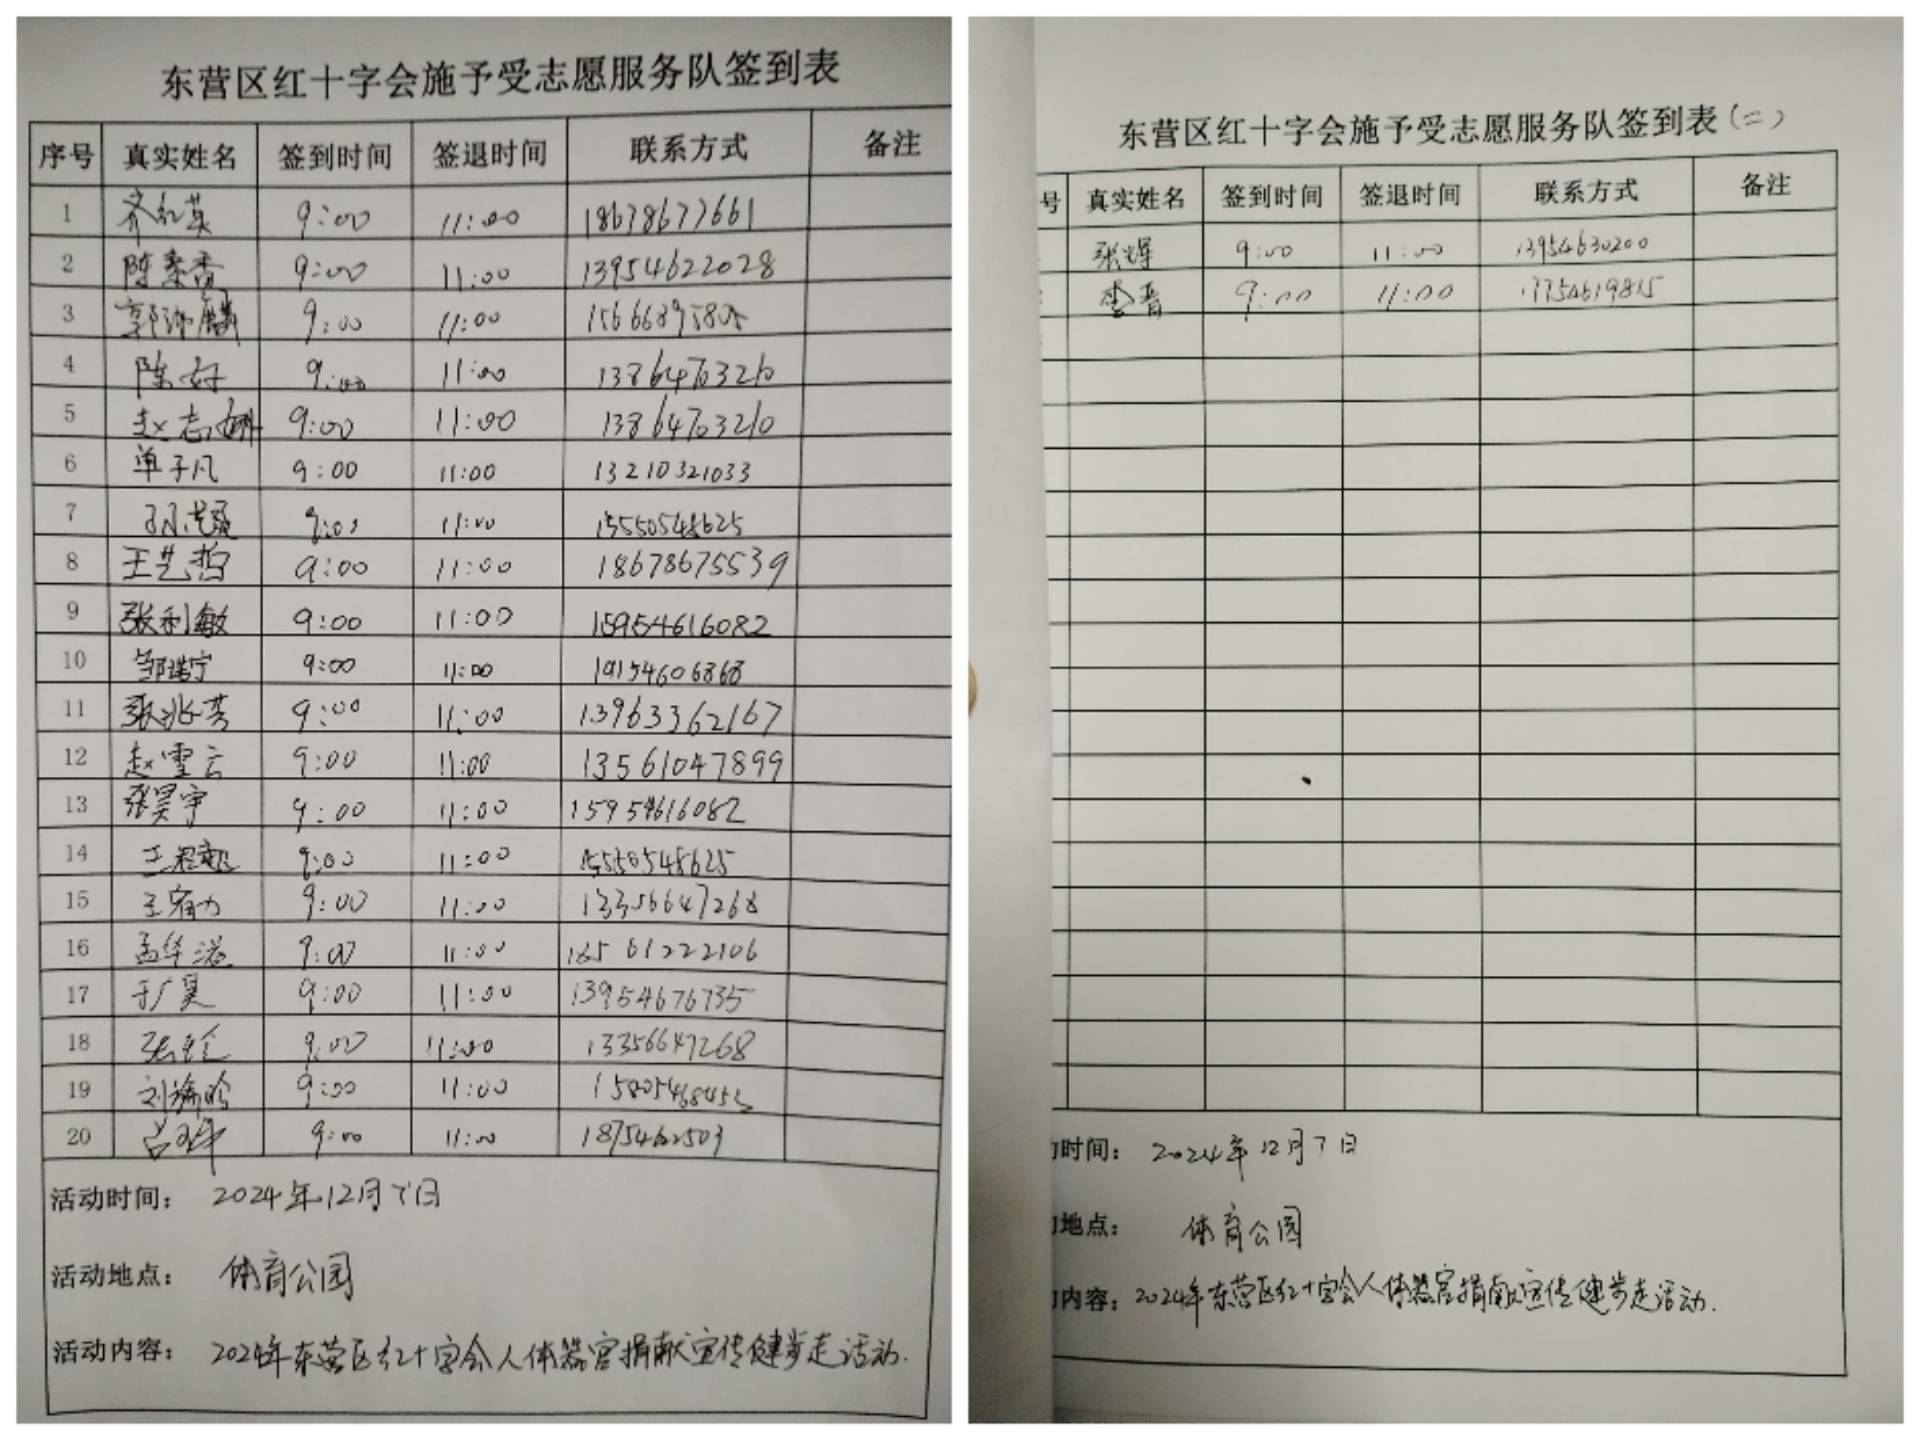 东营区红十字会施予受志愿服务队签到表
序号 真实姓名 签到时间 签退时间 联系方式 备注
1 齐红英 9:00 11:00 18678677661
2 陈素香 9:00 11:00 13954622028
3 9:00 11:00
4 陈好 9:00 11:00 13864703210
5 赵志娴 9:00 11:00 13864703210
6 单子凡 9:00 11:00 13210321033
7 9:00 11:00 15550548625
8 王艺哲 9:00 11:00 18678675539
9 张利敏 9:00 11:00 15954616082
10 邹瑞宁 9:00 11:00 19154606868
11 张兆芳 9:00 11:00 13963362167
12 赵雪云 9:00 11:00 13561047899
13 张昊宇 9:00 11:00 15954616082
14 9:00 11:00 15550548625
15 王宥力 9:00 11:00 13356647268
16 孟华溢 9:00 11:00 16561222106
17 于广昊 9:00 11:00 13954676735
18 9:00 11:00 13356647268
19 9:00 11:00
20 9:00 11:00
活动时间: 2024年12月7日
活动地点: 体育公园
活动内容: 2024年东营区红十字会人体器官捐献宣传健步走活动.
东营区红十字会施予受志愿服务队签到表(二)
号 真实姓名 签到时间 签退时间 联系方式 备注
张辉 9:00 11:00 13954630200
李晋 9:00 11:00 17754619815
时间: 2024年12月7日
地点: 体育公园
内容: 2024年东营区红十字会人体器官捐献宣传健步走活动.